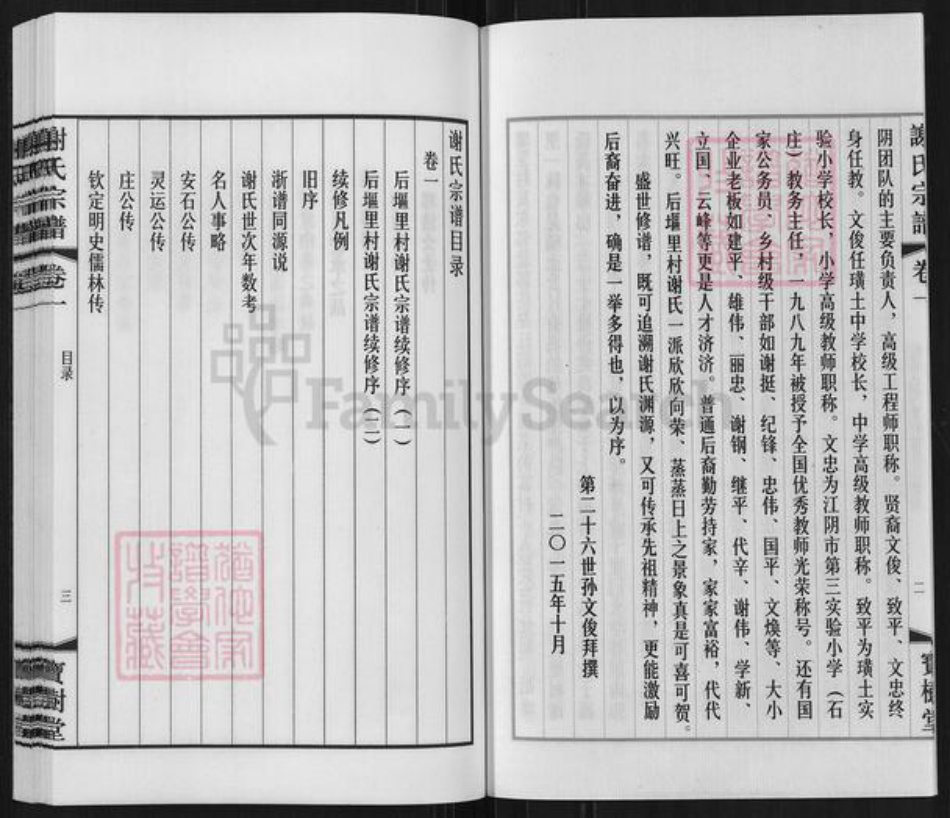 謝氏宗譜
卷一
二
寶樹堂
阴团队的主要负责人，高级工程师职称。贤裔文俊、致平、文忠终
身任教。文俊任璜土中学校长，中学高级教师职称。致平为璜土实
验小学校长，小学高级教师职称。文忠为江阴市第三实验小学（石
庄）教务主任，一九八九年被授予全国优秀教师光荣称号。还有国
家公务员，乡村级干部如谢挺、纪锋、忠伟、国平、文焕等、大小
企业老板如建平、雄伟、丽忠、谢钢、继平、代辛、谢伟、学新、
立国、云峰等更是人才济济。普通后裔勤劳持家，家家富裕，代代
兴旺。后堰里村谢氏一派欣欣向荣、蒸蒸日上之景象真是可喜可贺。
盛世修谱，既可追溯谢氏渊源，又可传承先祖精神，更能激励
后裔奋进，确是一举多得也，以为序。
第二十六世孙文俊拜撰
二〇一五年十月
谢氏宗谱目录
卷一
后堰里村谢氏宗谱续修序（一）
后堰里村谢氏宗谱续修序（二）
续修凡例
旧序
浙谱同源说
谢氏世次年数考
名人事略
安石公传
灵运公传
庄公传
钦定明史儒林传
謝氏宗譜
卷一
目录
三
寶樹堂
FamilySearch